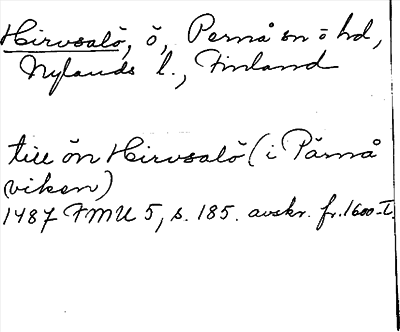 Hirvsalö, ö, Pernå sn ö hd,
Nylands l., Finland
till ön Hirvsalö (i Pärnå
viken)
1487 FMU 5, s. 185. avskr. fr. 1600-t.